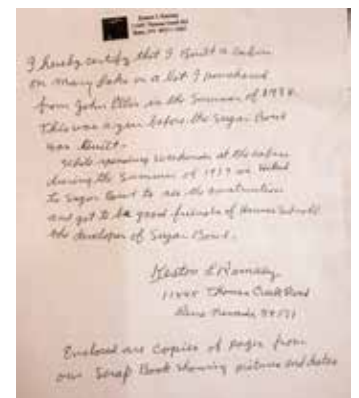 I hereby certify that I Built a cabin
on Mary Lake on a lot I purchased
from John Ellis in the Summer of 1938.
This was a year before the Sugar Bowl
was Built.
While spending weekends at the cabin
during the Summer of 1939 we hiked
to Sugar Bowl to see the construction
and got to be good friends of Hannes Schroll
the developer of Sugar Bowl.
Ramsey
Thomas Creek Road
Reno Nevada
Enclosed are Copies of pages from
our Scrap Book showing pictures and dates